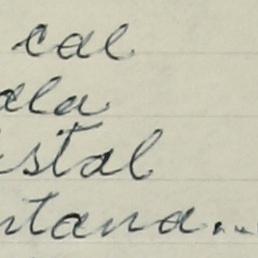 cal
ala
istal
ntana...